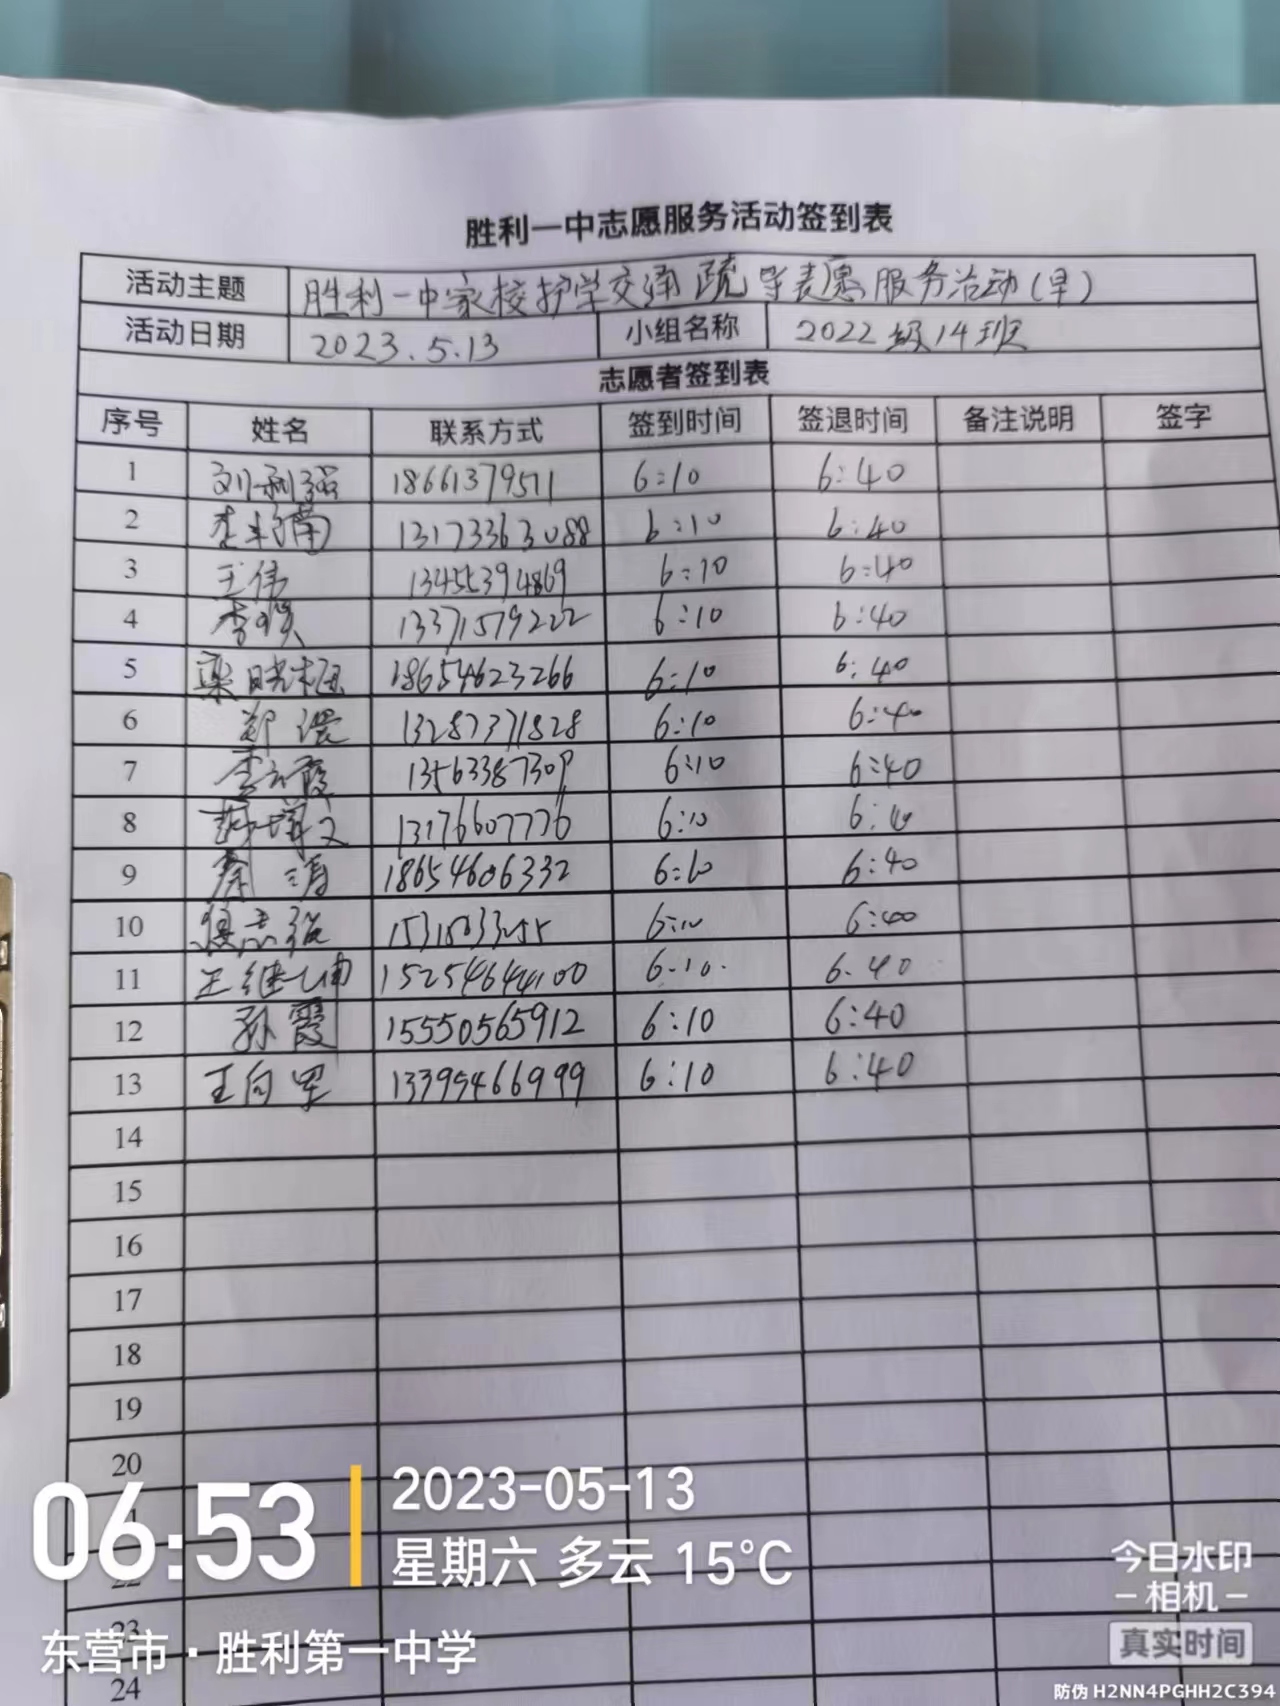 胜利一中志愿服务活动签到表
活动主题 胜利一中家校护学交通疏导志愿服务活动(早)
活动日期 2023.5.13 小组名称 2022级14班
志愿者签到表
序号 姓名 联系方式 签到时间 签退时间 备注说明 签字
1 刘利强 18661379511 6:10 6:40
2 13173363088 6:10 6:40
3 王伟 13455394869 6:10 6:40
4 13371579222 6:10 6:40
5 梁晓梅 18654623266 6:10 6:40
6 郑 13287371828 6:10 6:40
7 李云霞 13563387309 6:10 6:40
8 13176607776 6:10 6:40
9 秦涛 18654606332 6:10 6:40
10 6:10 6:40
11 王继坤 15254644100 6.10. 6.40
12 孙霞 15550565912 6:10 6:40
13 王向军 13395466999 6:10 6:40
14
15
16
17
18
19
20
22
23
24
06:53
2023-05-13
星期六 多云 15°C
东营市·胜利第一中学
今日水印
-相机-
真实时间
防伪 H2NN4PGHH2C394